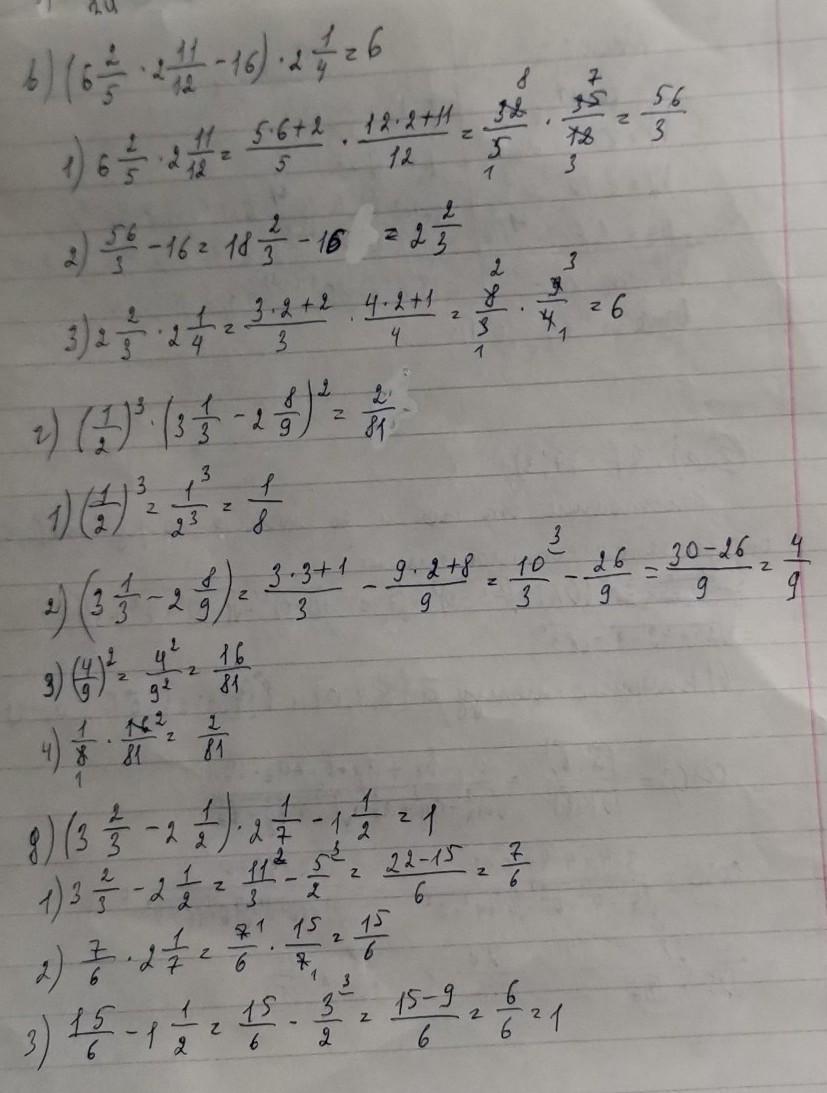 в) (6 2/5 · 2 11/12 - 16) · 2 1/4 = 6
1) 6 2/5 · 2 11/12 = (5·6+2)/5 · (12·2+11)/12 = 32/5 · 35/12 = 56/3
2) 56/3 - 16 = 18 2/3 - 16 = 2 2/3
3) 2 2/3 · 2 1/4 = (3·2+2)/3 · (4·2+1)/4 = 8/3 · 9/4 = 6
г) (1/2)³ · (3 1/3 - 2 8/9)² = 2/81
1) (1/2)³ = 1³/2³ = 1/8
2) (3 1/3 - 2 8/9) = (3·3+1)/3 - (9·2+8)/9 = 10/3 - 26/9 = (30-26)/9 = 4/9
3) (4/9)² = 4²/9² = 16/81
4) 1/8 · 16/81 = 2/81
д) (3 2/3 - 2 1/2) · 2 1/7 - 1 1/2 = 1
1) 3 2/3 - 2 1/2 = 11/3 - 5/2 = (22-15)/6 = 7/6
2) 7/6 · 2 1/7 = 7/6 · 15/7 = 15/6
3) 15/6 - 1 1/2 = 15/6 - 3/2 = (15-9)/6 = 6/6 = 1